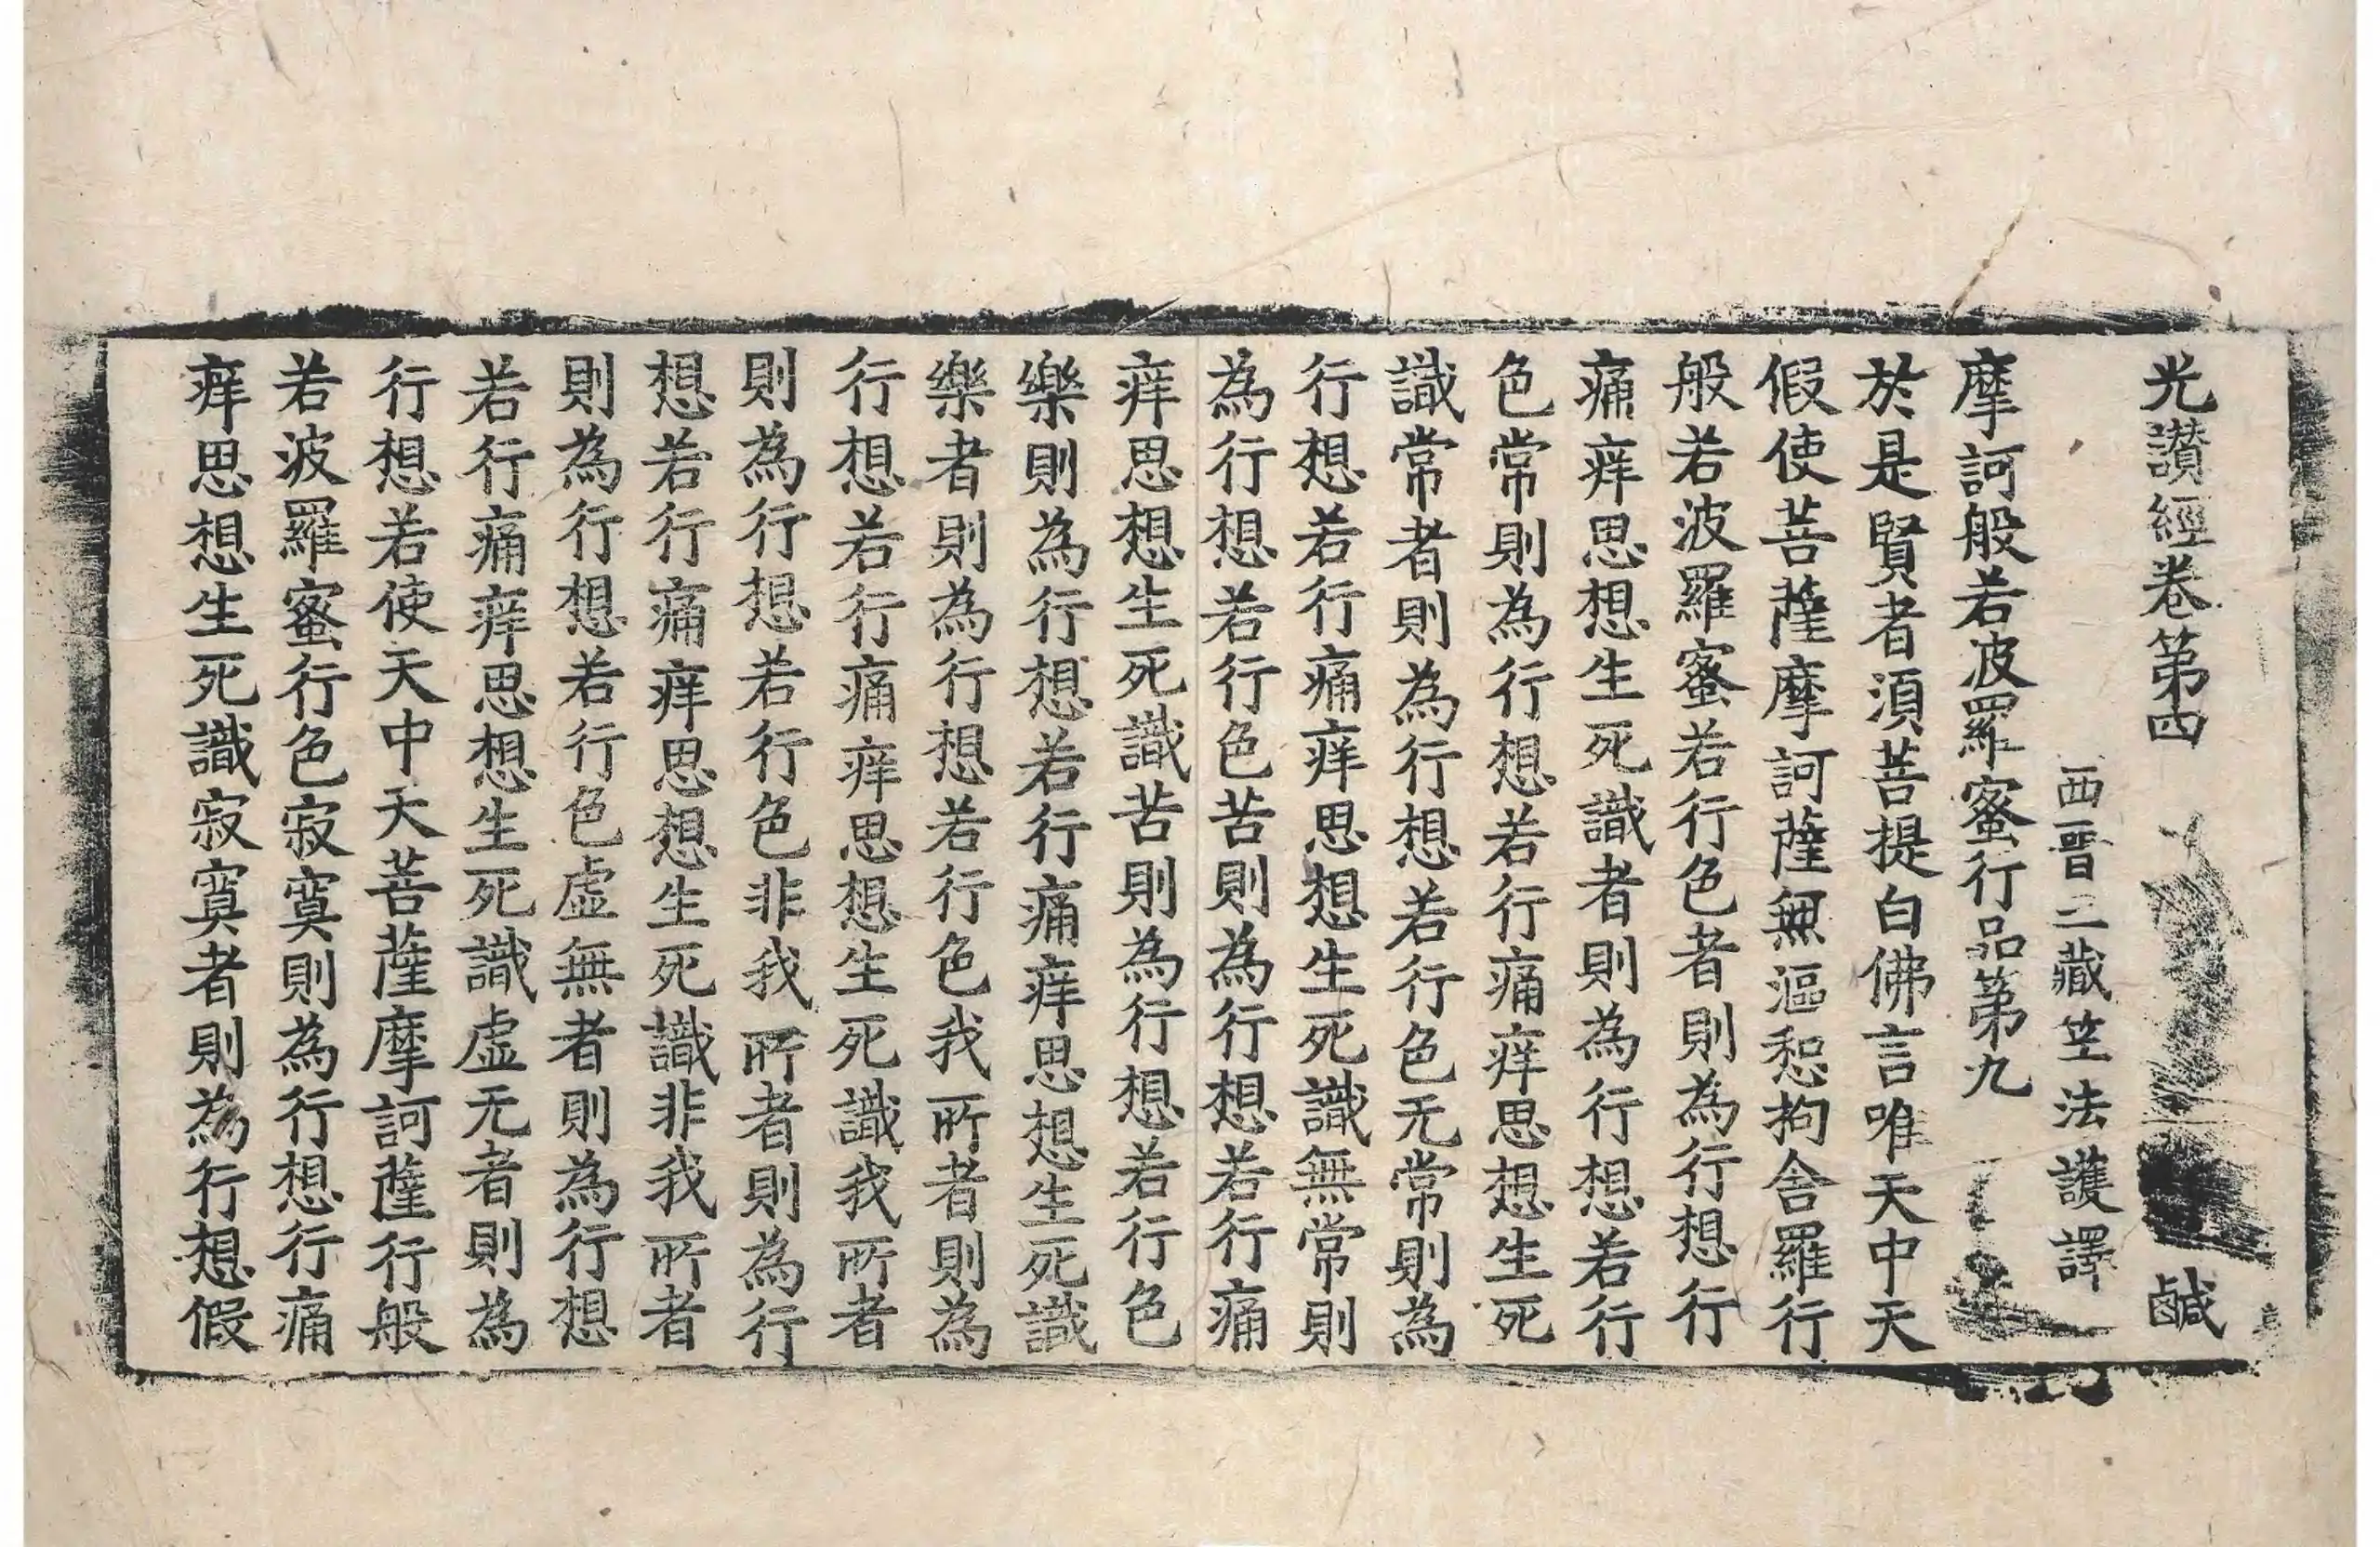 光讃經卷第四 鹹
西晉三藏笁法護譯
摩訶般若波羅蜜行品第九
於是賢者湏菩提白佛言唯天中天
假使菩薩摩訶薩無漚惒拘舍羅行
般若波羅蜜若行色者則為行想行
痛痒思想生死識者則為行想若行
色常則為行想若行痛痒思想生死
識常者則為行想若行色无常則為
行想若行痛痒思想生死識無常則
為行想若行色苦則為行想若行痛
痒思想生死識苦則為行想若行色
樂則為行想若行痛痒思想生死識
樂者則為行想若行色我所者則為
行想若行痛痒思想生死識我所者
則為行想若行色非我所者則為行
想若行痛痒思想生死識非我所者
則為行想若行色虛無者則為行想
若行痛痒思想生死識虛无者則為
行想若使天中天菩薩摩訶薩行般
若波羅蜜行色寂寞則為行想行痛
痒思想生死識寂寞者則為行想假